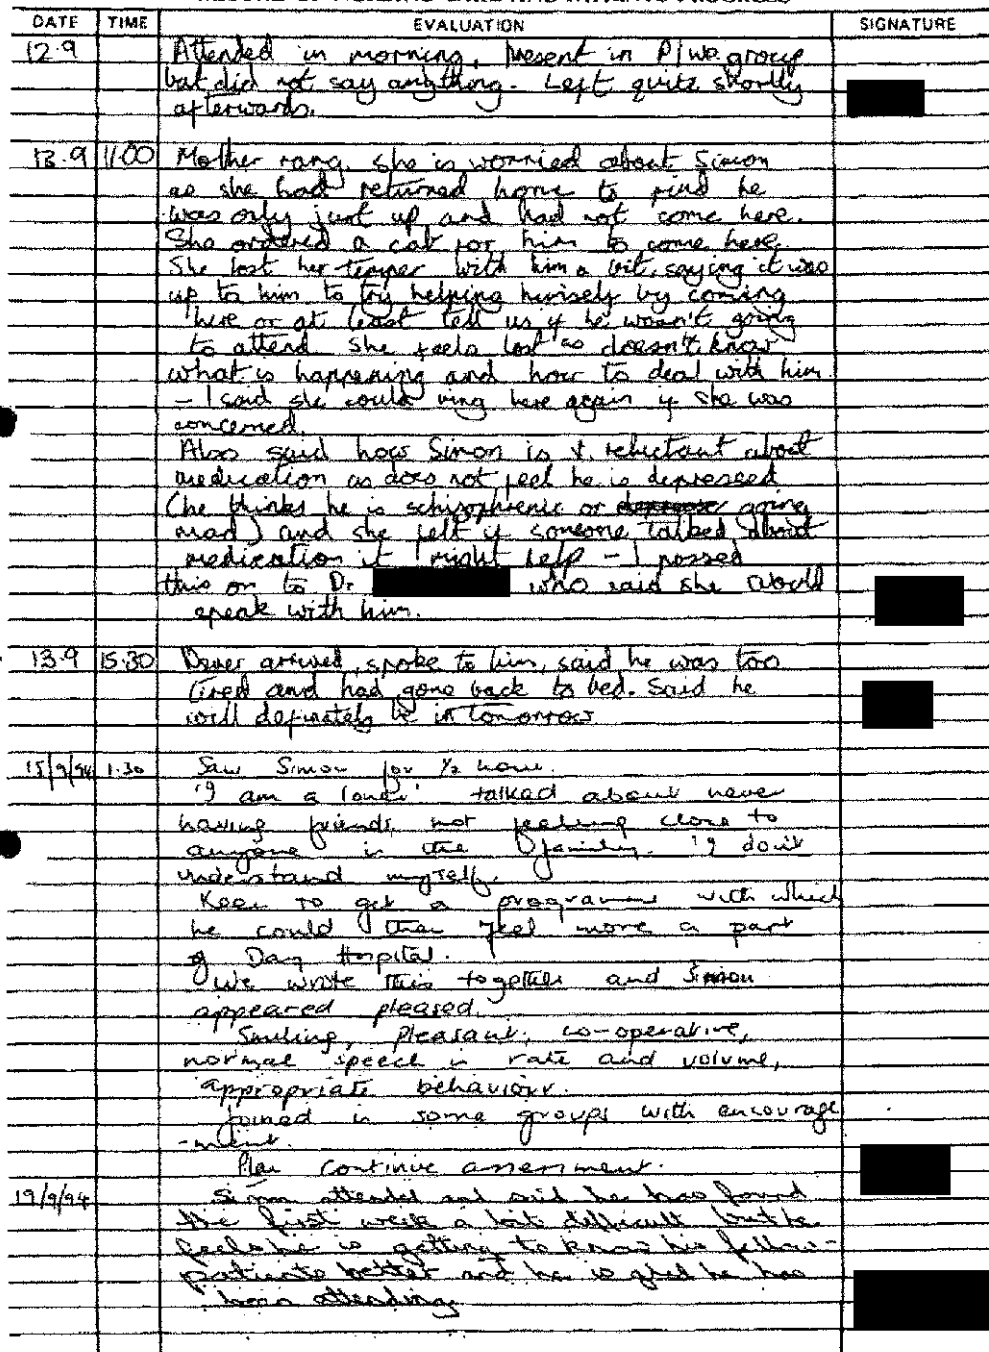 DATE TIME EVALUATION SIGNATURE
12.9 Attended in morning. Present in P/wa group
but did not say anything. Left quite shortly
afterwards.
13.9 11.00 Mother rang, she is worried about Simon
as she had returned home to find he
was only just up and had not come here.
She ordered a cab for him to come here.
She lost her temper with him a bit, saying it was
up to him to try helping himself by coming
here or at least tell us if he wasn't going
to attend. She feels lost as doesn't know
what is happening and how to deal with him
- I said she could ring here again if she was
concerned.
Also said how Simon is v. reluctant about
medication as does not feel he is depressed
(he thinks he is schizophrenic or going
mad) and she felt if someone talked about
medication it might help - I passed
this on to Dr who said she would
speak with him.
13.9 15.30 arrived, spoke to him, said he was too
tired and had gone back to bed. Said he
will definately be in tomorrow
15/9/94 1.30 Saw Simon for 1/2 hour.
'I am a loner' talked about never
having friends, not feeling close to
anyone in the family. 'I don't
understand myself.
Keen to get a programme with which
he could then feel more a part
of Day Hospital.
We wrote this together and Simon
appeared pleased.
Smiling, pleasant, co-operative,
normal speech in rate and volume,
appropriate behaviour.
Joined in some groups with encourage
-ment.
Plan continue assessment.
19/9/94 Simon attended and said he has found
the first week a bit difficult but he
feels he is getting to know his fellow-
patients better and he is glad he has
been attending